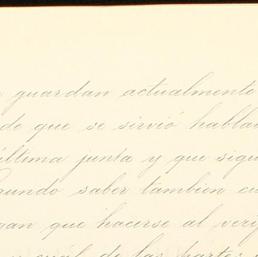 guardan actualmente
de que se sirvió habla
última junta y que sigu
saber tambien cu
que hacerse al very
cual de las partes